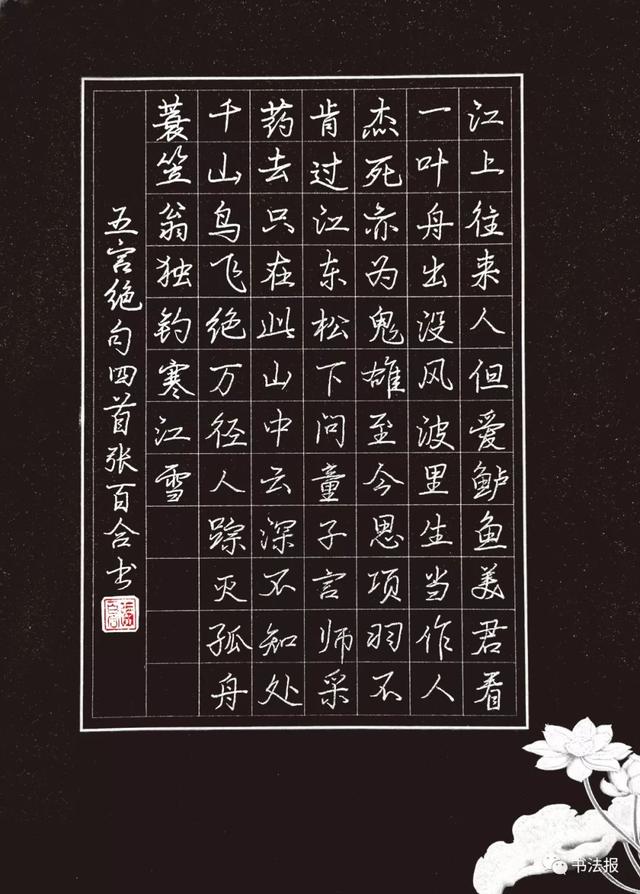 江上往来人但爱鲈鱼美君看
一叶舟出没风波里生当作人
杰死亦为鬼雄至今思项羽不
肯过江东松下问童子言师采
药去只在此山中云深不知处
千山鸟飞绝万径人踪灭孤舟
蓑笠翁独钓寒江雪
五言绝句四首张百合书
书法报